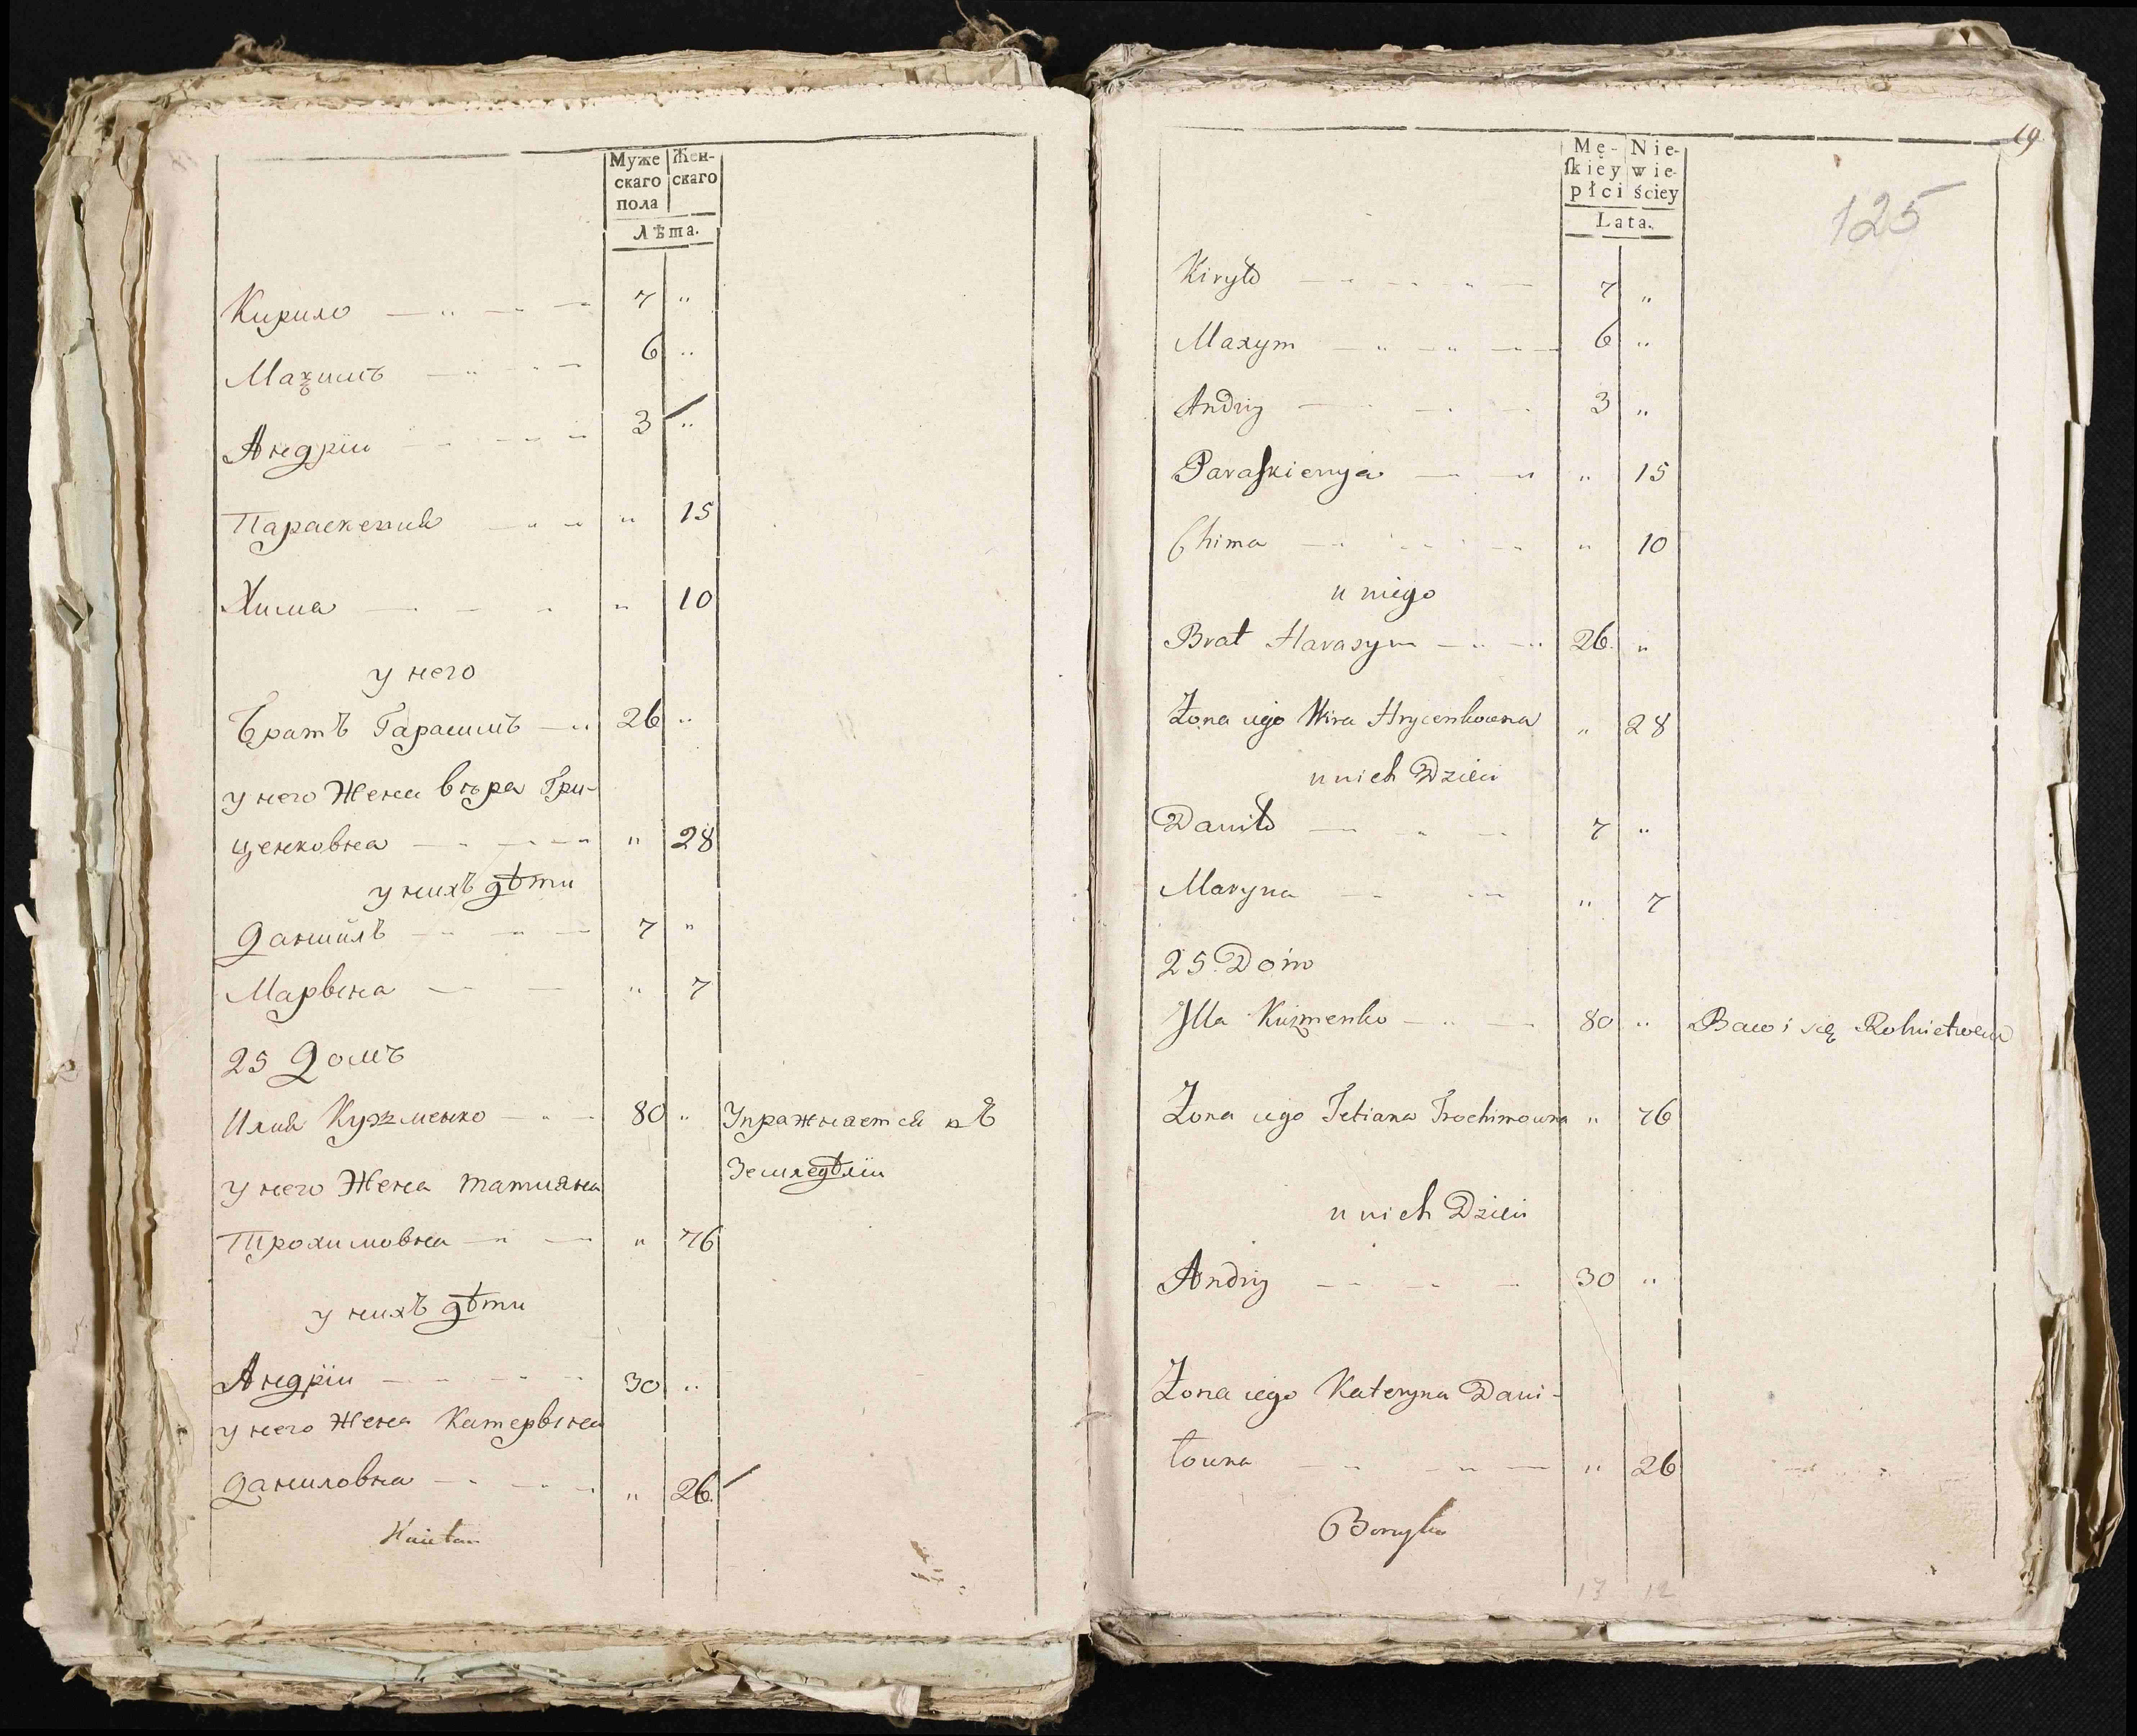 Муже Жен-
скаго скаго
пола
Лѣта.
Кирило 7 "
Маѯимъ 6 "
Андрїи 3 "
Параскевия " 15
Хима " 10
у него
Братъ Гарасимъ 26 "
у него Жена вѣра Гри-
ценковна " 28
у нихъ дѣти
Даниилъ 7 "
Марвена " 7
25 Домъ
Илия Кузменко 80 " Упражняется въ
Земледѣлїи
у него Жена татияна
Трохимовна " 76
у нихъ дѣти
Андрїи 30 "
у него Жена Катерына
Даниловна " 26
19
125
Mę- Nie-
ſkiéy wie-
płci ściey
Lata.
Kiryło 7 "
Maxym 6 "
Andrij 3 "
Paraſkiewija " 15
Chima " 10
u niego
Brat Harasym 26 "
Żona iego Wira Hrycenkowna " 28
u nich Dzieci
Daniło 7 "
Maryna " 7
25 Dom
Jlla Kuzmenko 80 " Bawi się Rolnictwem
Żona iego Tetiana Trochimowna " 76
u nich Dzieci
Andrij 30 "
Żona iego Kateryna Dani-
łowna " 26
17 12